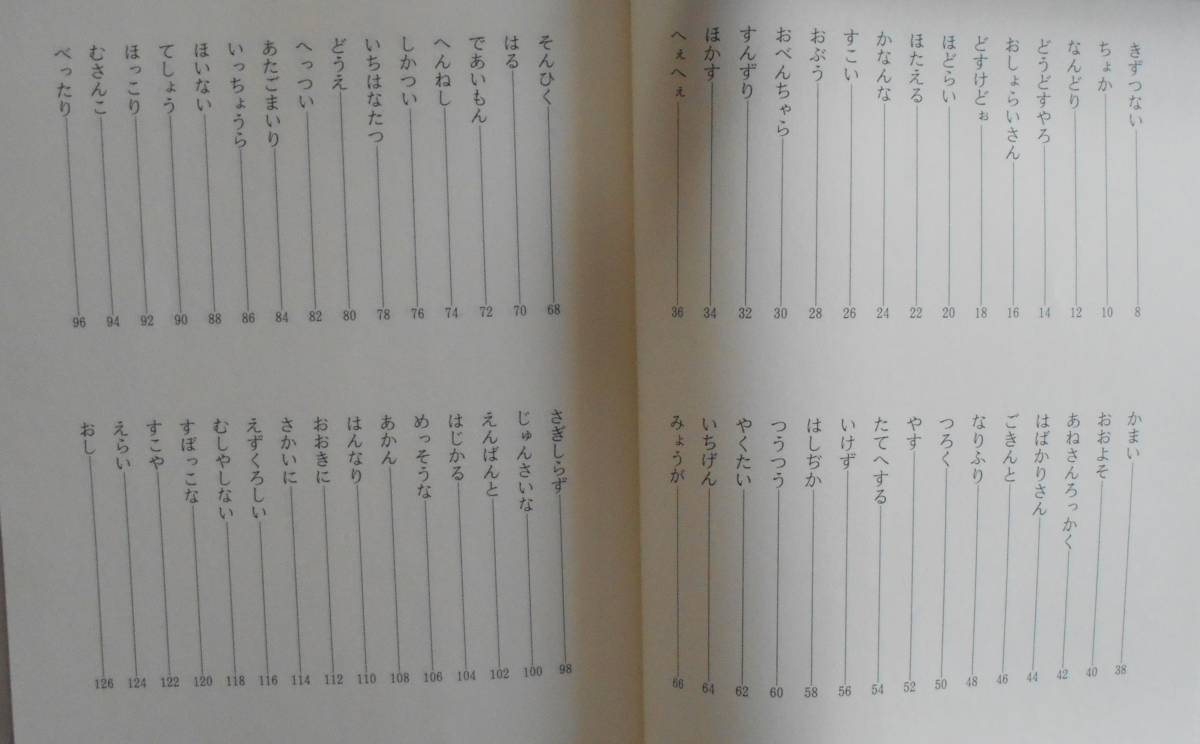 きずつない 8
ちょか 10
なんどり 12
どうどすやろ 14
おしょらいさん 16
どすけどぉ 18
ほどらい 20
ほたえる 22
かなんな 24
すこい 26
おぶう 28
おべんちゃら 30
すんずり 32
ほかす 34
へぇへぇ 36
かまい 38
おおよそ 40
あねさんろっかく 42
はばかりさん 44
ごきんと 46
なりふり 48
つろく 50
やす 52
たてへする 54
いけず 56
はしぢか 58
つうつう 60
やくたい 62
いちげん 64
みょうが 66
そんひく 68
はる 70
であいもん 72
へんねし 74
しかつい 76
いちはなたつ 78
どうえ 80
へっつい 82
あたごまいり 84
いっちょうら 86
ほいない 88
てしょう 90
ほっこり 92
むさんこ 94
べったり 96
さぎしらず 98
じゅんさいな 100
えんばんと 102
はじかる 104
めっそうな 106
あかん 108
はんなり 110
おおきに 112
さかいに 114
えずくろしい 116
むしやしない 118
すぼっこな 120
すこや 122
えらい 124
おし 126